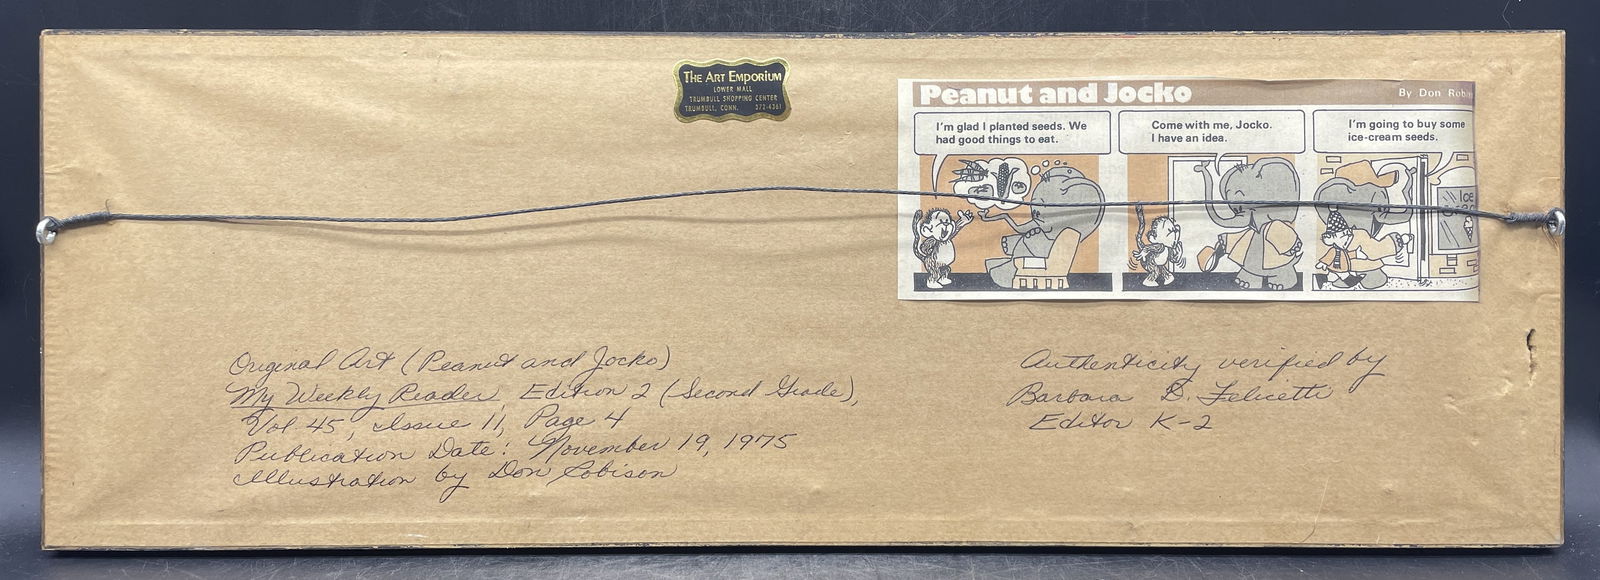 THE ART EMPORIUM
LOWER MALL
TRUMBULL SHOPPING CENTER
TRUMBULL, CONN. 372-4361
Peanut and Jocko
By Don Robi
I'm glad I planted seeds. We
had good things to eat.
Come with me, Jocko.
I have an idea.
I'm going to buy some
ice-cream seeds.
Ice
Original Art (Peanut and Jocko)
My Weekly Reader, Edition 2 (Second Grade),
Vol. 45, Issue 11, Page 4
Publication Date: November 19, 1975
Illustration by Don Robison
Authenticity verified by
Barbara D. Felicetti
Editor K-2